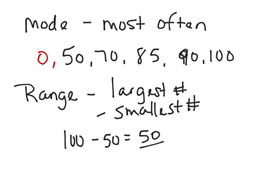 Mode - most often
0, 50, 70, 85, 90, 100
Range - largest #
- smallest #
100 - 50 = 50